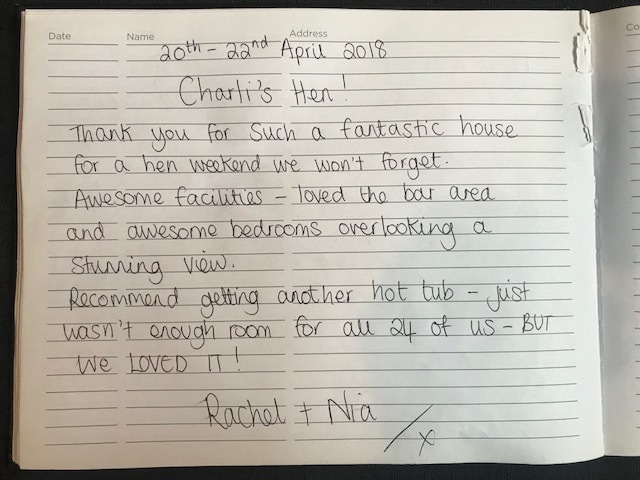 Date Name Address
20th - 22nd April 2018
Charli's Hen!
Thank you for such a fantastic house
for a hen weekend we won't forget.
Awesome facilities - loved the bar area
and awesome bedrooms overlooking a
stunning view.
Recommend getting another hot tub - just
wasn't enough room for all 24 of us - BUT
WE LOVED IT!
Rachel + Nia
x
Co